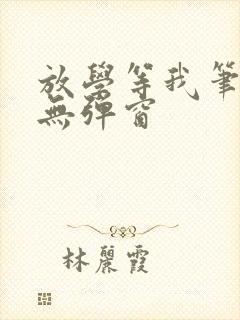 放學等我筆
無彈窗
林麗霞